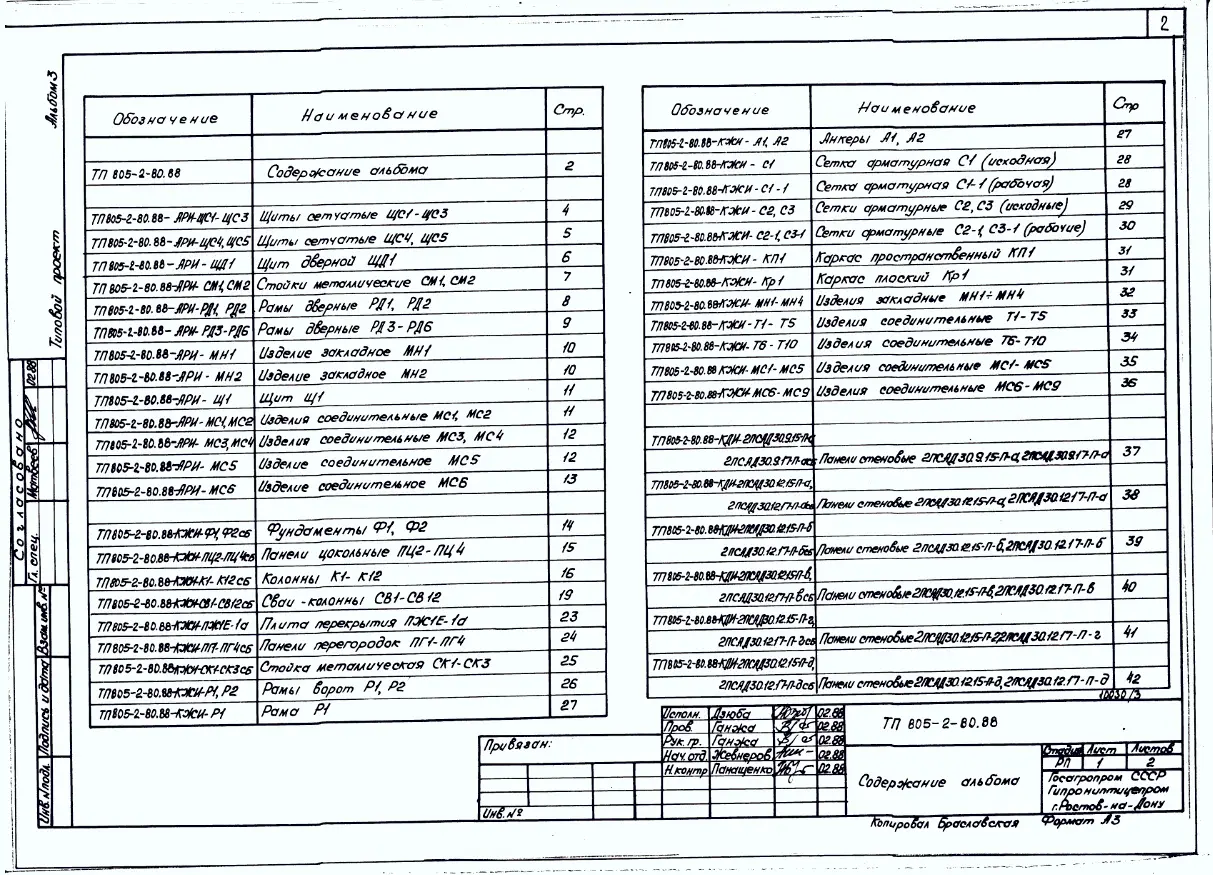 2
Альбом 3
Типовой проект
Обозначение Наименование Стр.
ТП 805-2-80.88 Содержание альбома 2
ТП 805-2-80.88-АРИ-ЩС1-ЩС3 Щиты сетчатые ЩС1-ЩС3 4
ТП 805-2-80.88-АРИ-ЩС4,ЩС5 Щиты сетчатые ЩС4, ЩС5 5
ТП 805-2-80.88-АРИ-ЩД1 Щит дверной ЩД1 6
ТП 805-2-80.88-АРИ-СМ1,СМ2 Стойки металлические СМ1, СМ2 7
ТП 805-2-80.88-АРИ-РД1, РД2 Рамы дверные РД1, РД2 8
ТП 805-2-80.88-АРИ-РД3-РД6 Рамы дверные РД3-РД6 9
ТП 805-2-80.88-АРИ-МН1 Изделие закладное МН1 10
ТП 805-2-80.88-АРИ-МН2 Изделие закладное МН2 10
ТП 805-2-80.88-АРИ-Щ1 Щит Щ1 11
ТП 805-2-80.88-АРИ-МС1,МС2 Изделия соединительные МС1, МС2 11
ТП 805-2-80.88-АРИ-МС3,МС4 Изделия соединительные МС3, МС4 12
ТП 805-2-80.88-АРИ-МС5 Изделие соединительное МС5 12
ТП 805-2-80.88-АРИ-МС6 Изделие соединительное МС6 13
ТП 805-2-80.88-КЖИ-Ф1,Ф2сб Фундаменты Ф1, Ф2 14
ТП 805-2-80.88-КЖИ-ПЦ2-ПЦ4сб Панели цокольные ПЦ2-ПЦ4 15
ТП 805-2-80.88-КЖИ-К1-К12сб Колонны К1-К12 16
ТП 805-2-80.88-КЖИ-СВ1-СВ12сб Сваи-колонны СВ1-СВ12 19
ТП 805-2-80.88-КЖИ-ПЖ1Е-1а Плита перекрытия ПЖ1Е-1а 23
ТП 805-2-80.88-КЖИ-ПГ1-ПГ4сб Панели перегородок ПГ1-ПГ4 24
ТП 805-2-80.88-КЖИ-СК1-СК3сб Стойка металлическая СК1-СК3 25
ТП 805-2-80.88-КЖИ-Р1, Р2 Рамы ворот Р1, Р2 26
ТП 805-2-80.88-КЖИ-Р1 Рама Р1 27
Обозначение Наименование Стр
ТП 805-2-80.88-КЖИ-А1, А2 Анкеры А1, А2 27
ТП 805-2-80.88-КЖИ-С1 Сетка арматурная С1 (исходная) 28
ТП 805-2-80.88-КЖИ-С1-1 Сетка арматурная С1-1 (рабочая) 28
ТП 805-2-80.88-КЖИ-С2, С3 Сетки арматурные С2, С3 (исходные) 29
ТП 805-2-80.88-КЖИ-С2-1, С3-1 Сетки арматурные С2-1, С3-1 (рабочие) 30
ТП 805-2-80.88-КЖИ-КП1 Каркас пространственный КП1 31
ТП 805-2-80.88-КЖИ-Кр1 Каркас плоский Кр1 31
ТП 805-2-80.88-КЖИ-МН1-МН4 Изделия закладные МН1÷МН4 32
ТП 805-2-80.88-КЖИ-Т1-Т5 Изделия соединительные Т1-Т5 33
ТП 805-2-80.88-КЖИ-Т6-Т10 Изделия соединительные Т6-Т10 34
ТП 805-2-80.88-КЖИ-МС1-МС5 Изделия соединительные МС1-МС5 35
ТП 805-2-80.88-КЖИ-МС6-МС9 Изделия соединительные МС6-МС9 36
ТП 805-2-80.88-КДИ-2ПСАД30.9.15-П-а
2ПСАД30.9.17-П-асб Панели стеновые 2ПСАД30.9.15-П-а, 2ПСАД30.9.17-П-а 37
ТП 805-2-80.88-КДИ-2ПСАД30.12.15-П-а,
2ПСАД30.12.17-П-асб Панели стеновые 2ПСАД30.12.15-П-а, 2ПСАД30.12.17-П-а 38
ТП 805-2-80.88-КДИ-2ПСАД30.12.15-П-б
2ПСАД30.12.17-П-бсб Панели стеновые 2ПСАД30.12.15-П-б, 2ПСАД30.12.17-П-б 39
ТП 805-2-80.88-КДИ-2ПСАД30.12.15-П-в,
2ПСАД30.12.17-П-всб Панели стеновые 2ПСАД30.12.15-П-в, 2ПСАД30.12.17-П-в 40
ТП 805-2-80.88-КДИ-2ПСАД30.12.15-П-г,
2ПСАД30.12.17-П-гсб Панели стеновые 2ПСАД30.12.15-П-г, 2ПСАД30.12.17-П-г 41
ТП 805-2-80.88-КДИ-2ПСАД30.12.15-П-д,
2ПСАД30.12.17-П-дсб Панели стеновые 2ПСАД30.12.15-П-д, 2ПСАД30.12.17-П-д 42
10030/3
Согласовано
Гл. спец. Матвеев 02.88
Инв.№подл. Подпись и дата Взам.инв.№
Привязан:
Инв.№
Исполн. Дзюба 02.88
Пров. Ганжа 02.88
Рук.гр. Ганжа 02.88
Нач.отд. Жевнеров 02.88
Н.контр Панащенко 02.88
ТП 805-2-80.88
Содержание альбома
Стадия Лист Листов
РП 1 2
Госагропром СССР
Гипрониптицепром
г.Ростов-на-Дону
Копировал Браславская Формат А3